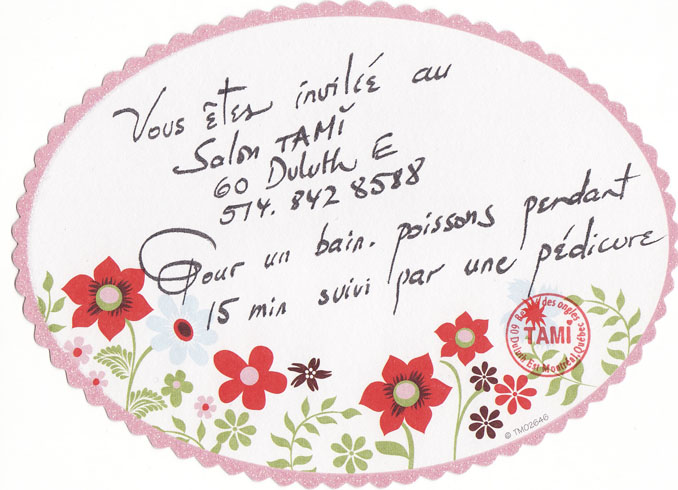 Vous êtes invitée au
Salon TAMi
60 Duluth E
514. 842 8588
Pour un bain. poissons pendant
15 min suivi par une pédicure
Beauté des ongles
TAMi
60 Duluth Est Montréal, Québec
© TM02646